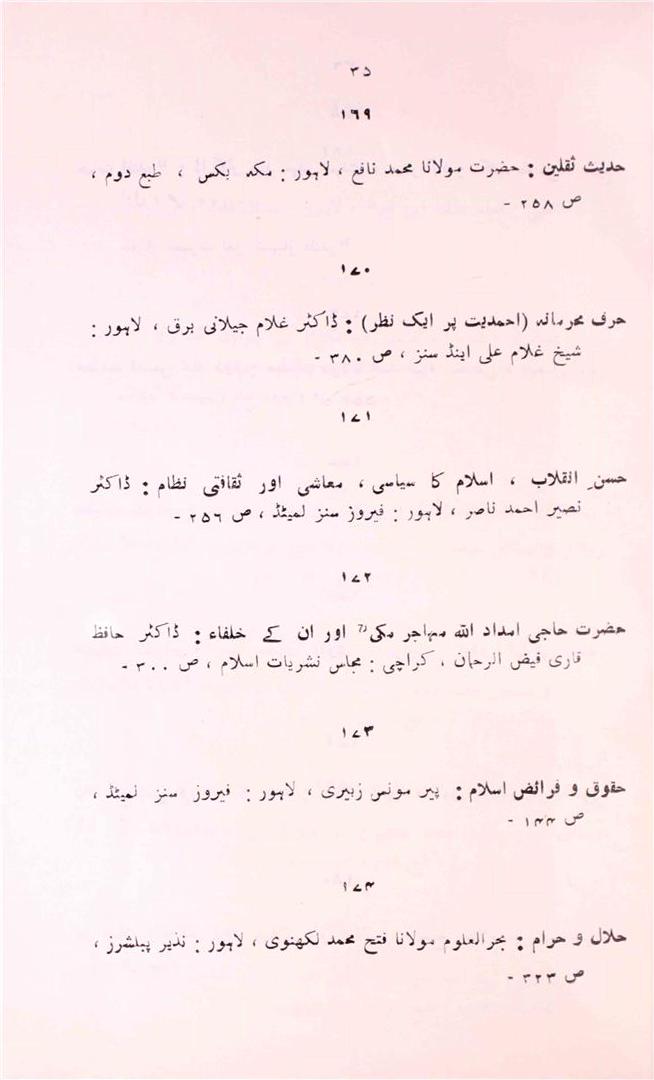 ۳۵
۱۶۹
حدیث ثقلین : حضرت مولانا محمد نافع ، لاہور : مکہ بکس ، طبع دوم ،
ص ۲۵۸ -
۱۷۰
حرف محرمانہ (احمدیت پر ایک نظر) : ڈاکٹر غلام جیلانی برق ، لاہور :
شیخ غلام علی اینڈ سنز ، ص ۳۸۰ -
۱۷۱
حسنِ انقلاب ، اسلام کا سیاسی ، معاشی اور ثقافتی نظام : ڈاکٹر
نصیر احمد ناصر ، لاہور : فیروز سنز لمیٹڈ ، ص ۲۵۶ -
۱۷۲
حضرت حاجی امداد اللہ مہاجر مکیؒ اور ان کے خلفاء : ڈاکٹر حافظ
قاری فیض الرحمان ، کراچی : مجلس نشریات اسلام ، ص ۳۰۰ -
۱۷۳
حقوق و فرائض اسلام : پیر مونس زبیری ، لاہور : فیروز سنز لمیٹڈ ،
ص ۱۴۴ -
۱۷۴
حلال و حرام : بحرالعلوم مولانا فتح محمد لکھنوی ، لاہور : نذیر پبلشرز ،
ص ۳۲۳ -